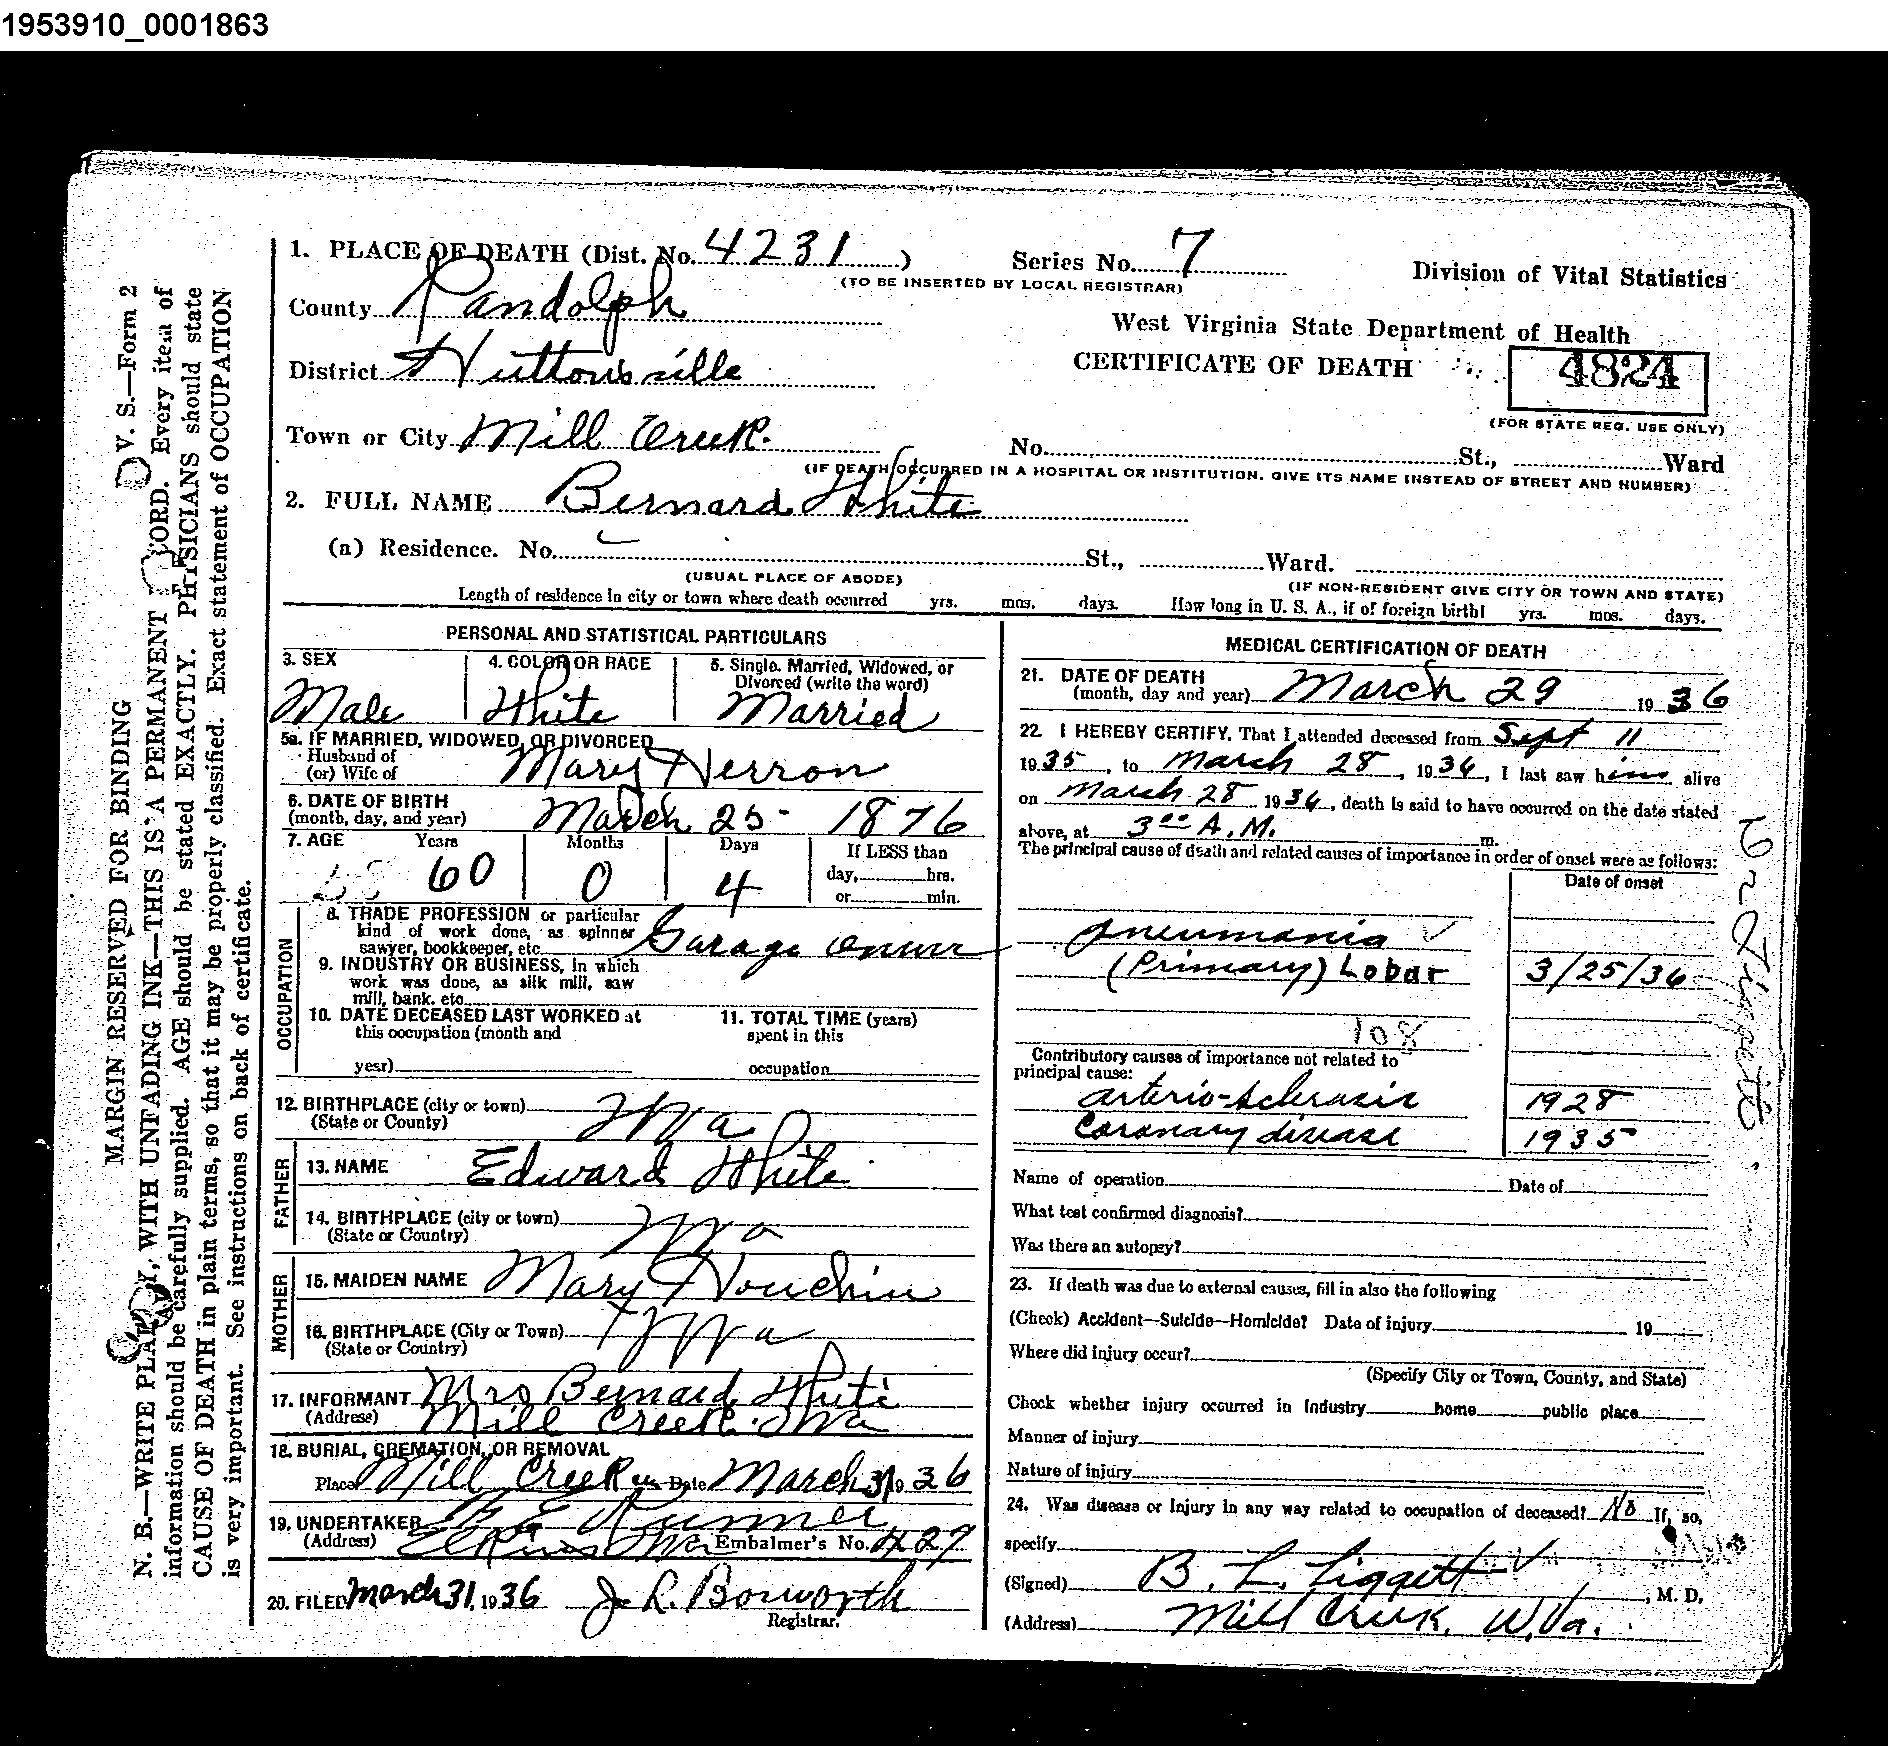 1953910_0001863
V. S.—Form 2
MARGIN RESERVED FOR BINDING
N. B.—WRITE PLAINLY, WITH UNFADING INK—THIS IS A PERMANENT RECORD. Every item of
information should be carefully supplied. AGE should be stated EXACTLY. PHYSICIANS should state
CAUSE OF DEATH in plain terms, so that it may be properly classified. Exact statement of OCCUPATION
is very important. See instructions on back of certificate.
1. PLACE OF DEATH (Dist. No. 4231) Series No. 7
(TO BE INSERTED BY LOCAL REGISTRAR)
Division of Vital Statistics
County Randolph
West Virginia State Department of Health
District Huttonsville
CERTIFICATE OF DEATH 4824
(FOR STATE REG. USE ONLY)
Town or City Mill Creek.
No. St., Ward
(IF DEATH OCCURRED IN A HOSPITAL OR INSTITUTION, GIVE ITS NAME INSTEAD OF STREET AND NUMBER)
2. FULL NAME Bernard White
(a) Residence. No. St., Ward.
(USUAL PLACE OF ABODE) (IF NON-RESIDENT GIVE CITY OR TOWN AND STATE)
Length of residence in city or town where death occurred yrs. mos. days. How long in U. S. A., if of foreign birth? yrs. mos. days.
PERSONAL AND STATISTICAL PARTICULARS
3. SEX 4. COLOR OR RACE 5. Single, Married, Widowed, or
Divorced (write the word)
Male White Married
5a. IF MARRIED, WIDOWED, OR DIVORCED
Husband of
(or) Wife of Mary Herron
6. DATE OF BIRTH
(month, day, and year) March 25- 1876
7. AGE Years Months Days If LESS than
60 0 4 day, hrs.
or min.
OCCUPATION
8. TRADE PROFESSION or particular
kind of work done, as spinner
sawyer, bookkeeper, etc. Garage owner
9. INDUSTRY OR BUSINESS, in which
work was done, as silk mill, saw
mill, bank, etc.
10. DATE DECEASED LAST WORKED at
this occupation (month and
year)
11. TOTAL TIME (years)
spent in this
occupation
12. BIRTHPLACE (city or town) WVa
(State or County)
FATHER
13. NAME Edward White
14. BIRTHPLACE (city or town) WVa
(State or Country)
MOTHER
15. MAIDEN NAME Mary Houchin
16. BIRTHPLACE (City or Town) WVa
(State or Country)
17. INFORMANT Mrs Bernard White
(Address) Mill Creek. WVa
18. BURIAL, CREMATION, OR REMOVAL
Place Mill Creek Date March 31 1936
19. UNDERTAKER Runner
(Address) Elkins WVa Embalmer's No. 427
20. FILED March 31, 1936 J. R. Bosworth
Registrar.
MEDICAL CERTIFICATION OF DEATH
21. DATE OF DEATH
(month, day and year) March 29 1936
22. I HEREBY CERTIFY, That I attended deceased from Sept 11
1935, to March 28, 1936, I last saw him alive
on March 28 1936, death is said to have occurred on the date stated
above, at 3 00 A.M. m.
The principal cause of death and related causes of importance in order of onset were as follows:
Date of onset
Pneumonia
(Primary) Lobar 3/25/36
108
Contributory causes of importance not related to
principal cause:
Arterio-sclerosis 1928
Coronary disease 1935
Name of operation Date of
What test confirmed diagnosis?
Was there an autopsy?
23. If death was due to external causes, fill in also the following
(Check) Accident—Suicide—Homicide? Date of injury 19
Where did injury occur?
(Specify City or Town, County, and State)
Check whether injury occurred in Industry home public place
Manner of injury
Nature of injury
24. Was disease or injury in any way related to occupation of deceased? No If, so,
specify
(Signed) B. L. Liggett, M. D.
(Address) Mill Creek, W.Va.